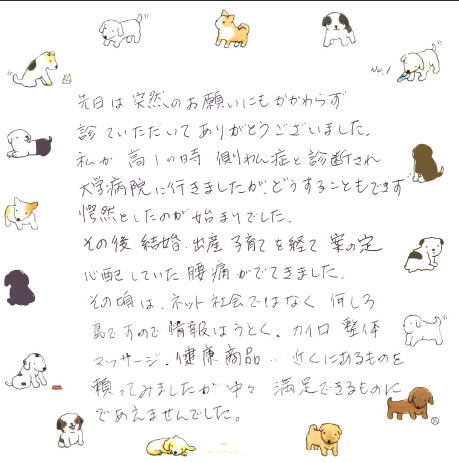 No.1
先日は突然のお願いにもかかわらず
診ていただいてありがとうございました。
私が高1の時 側わん症と診断され
大学病院に行きましたがどうすることもできず
愕然としたのが始まりでした。
その後 結婚.出産 子育てを経て 案の定
心配していた腰痛がでてきました。
その頃は、ネット社会ではなく 何しろ
島ですので情報はうとく、カイロ 整体
マッサージ、健康商品‥近くにあるものを
頼ってみましたが中々 満足できるものに
であえませんでした。